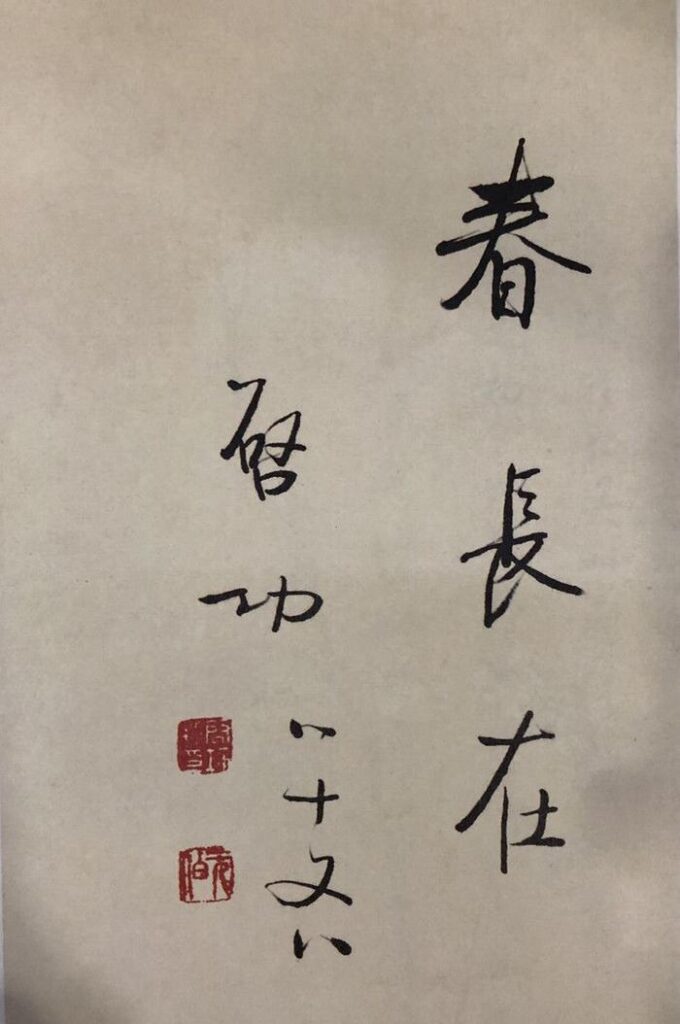 春長在
啓功
八十又八